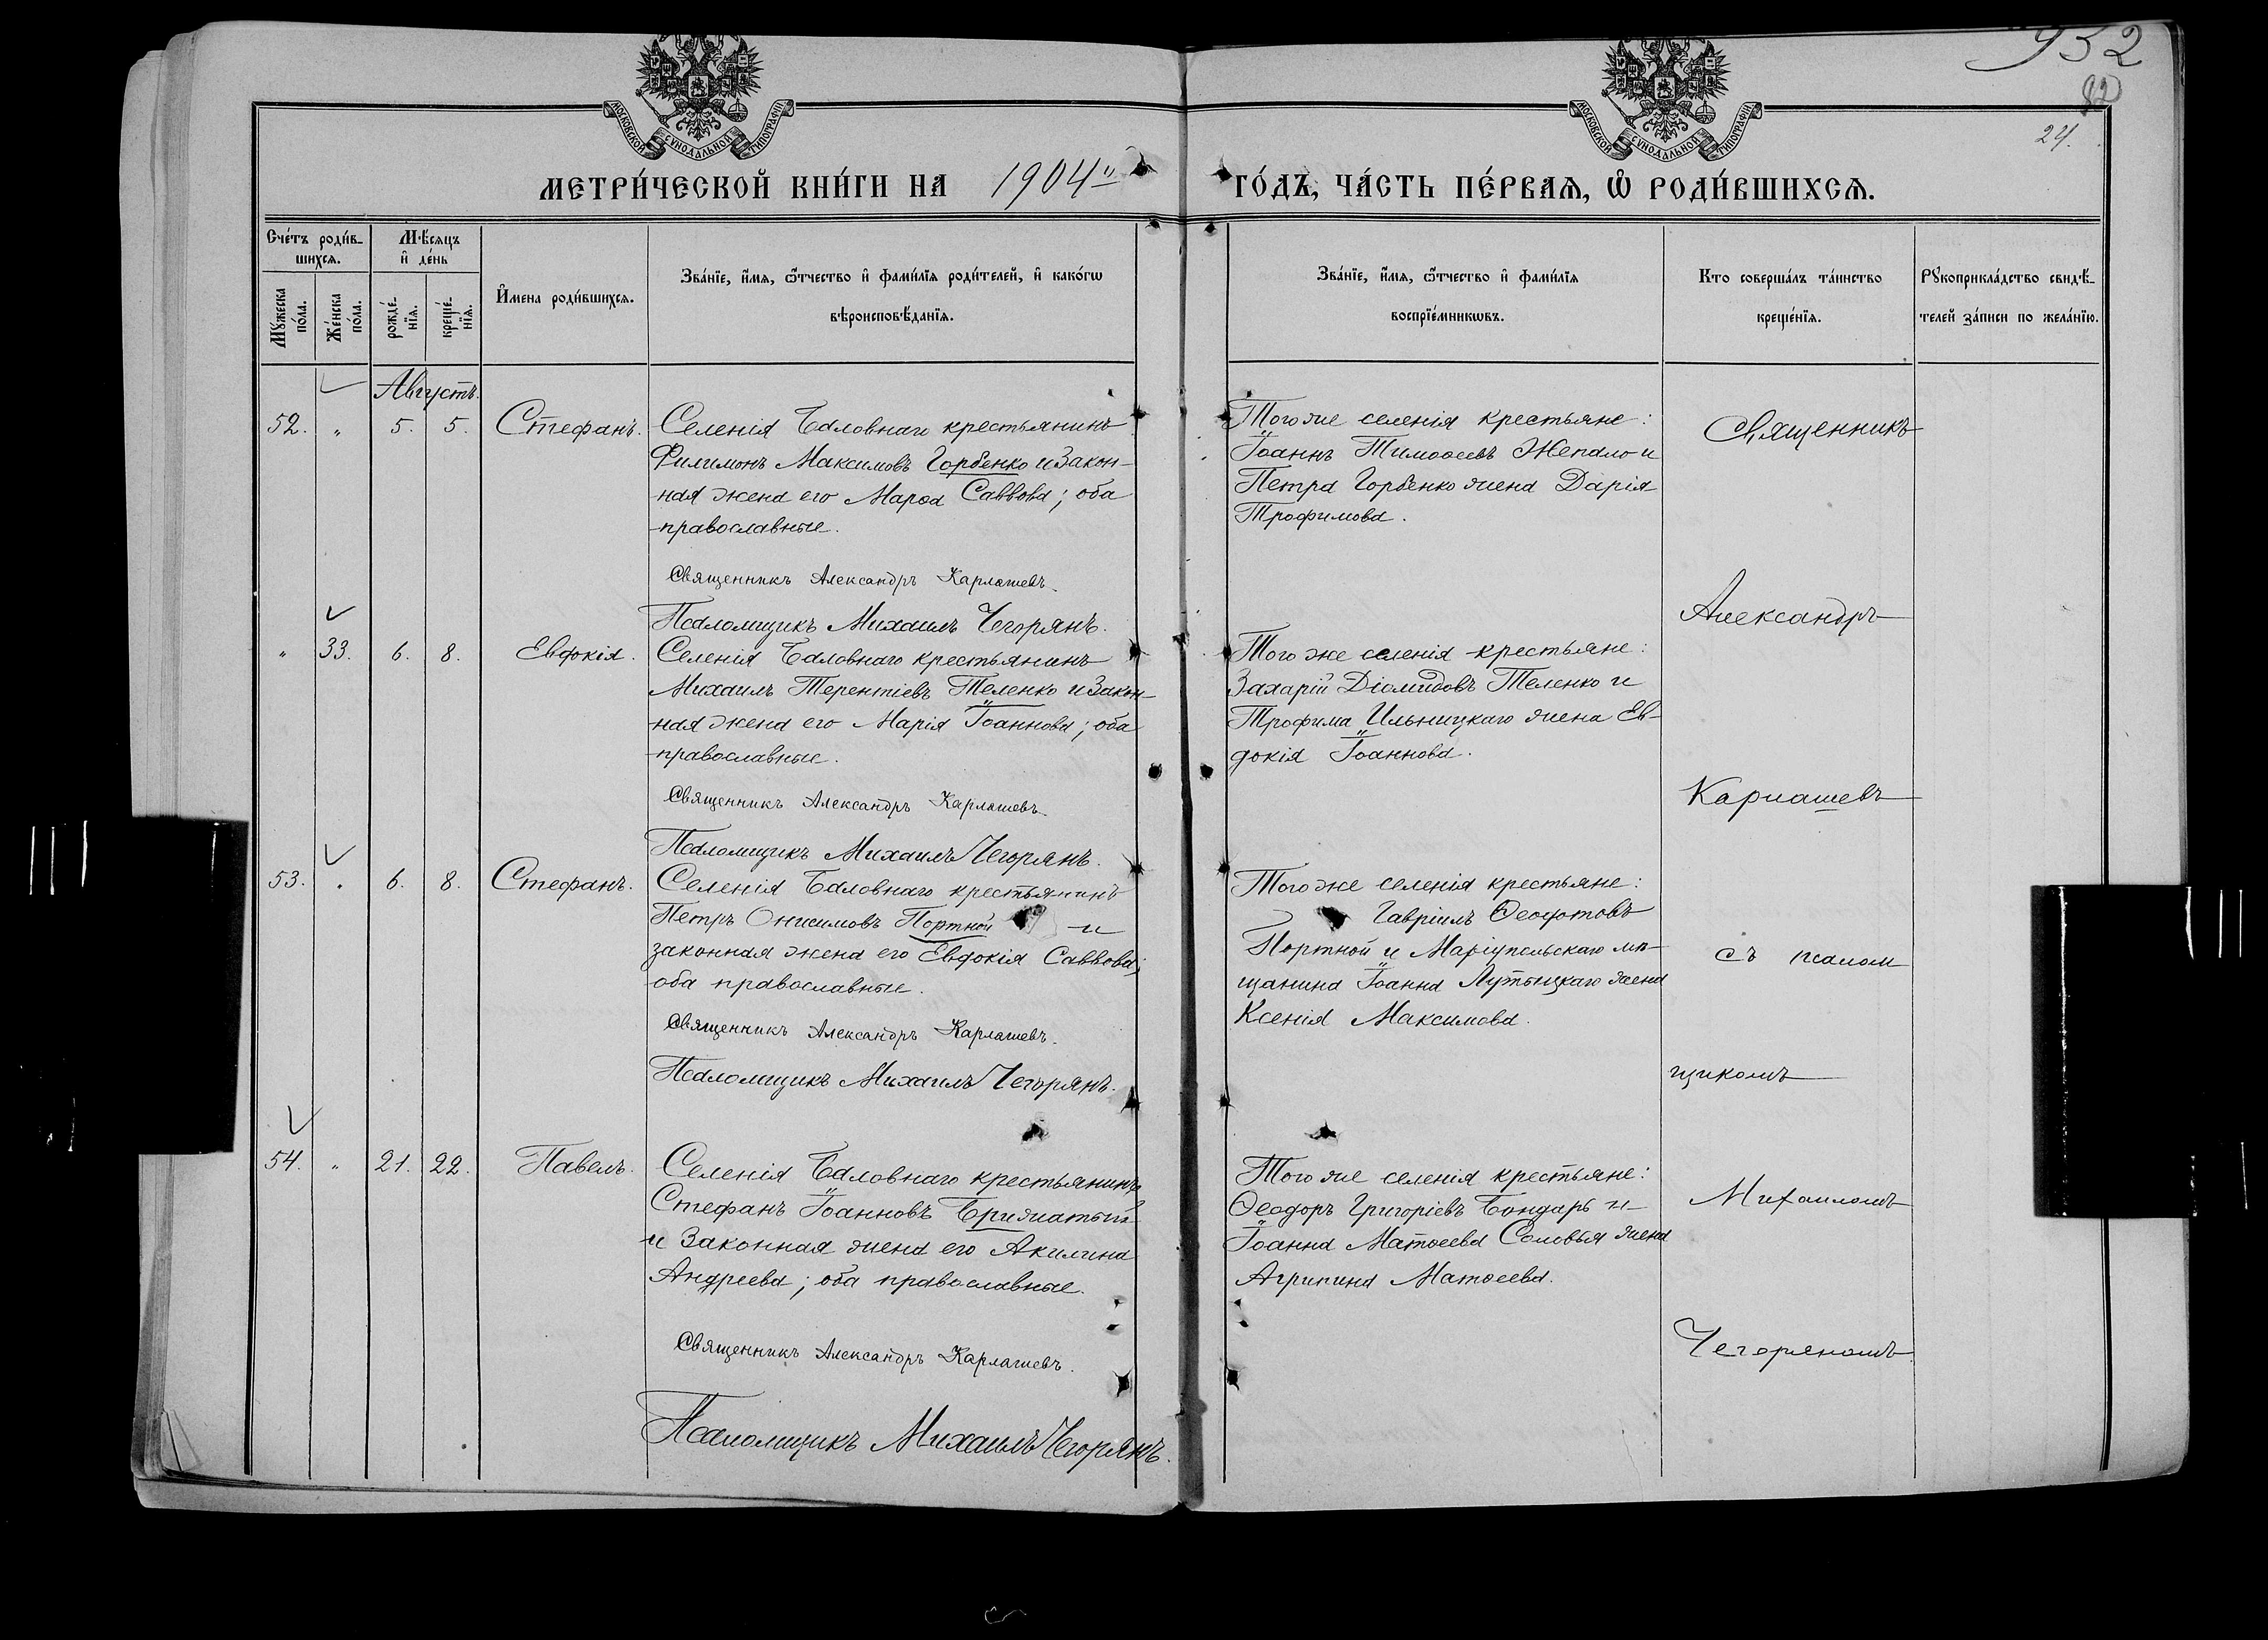 952
82
24.
МОСКОВСКОЙ СѴНОДАЛЬНОЙ ТИПОГРАФІИ
МОСКОВСКОЙ СѴНОДАЛЬНОЙ ТИПОГРАФІИ
МЕТРИ́ЧЕСКОЙ КНИ́ГИ НА 1904й ГО́ДЪ, ЧА́СТЬ ПЕ́РВАѦ, Ѽ РОДИ́ВШИХСѦ.
Сче́тъ роди́в-
шихсѧ.
Мѣ́сяцъ
и҆ де́нь
Мꙋ́жеска по́ла.
Же́нска по́ла.
рожде́-нїѧ.
креще́-нїѧ.
И҆мена роди́вшихсѧ.
Зва́нїе, и҆́мѧ, ѻ҆́тчество и҆ фами́лїѧ роди́телей, и҆ како́гѡ
вѣроисповѣ́данїѧ.
Зва́нїе, и҆́мѧ, ѻ҆́тчество и҆ фами́лїѧ
воспрїе́мникѡвъ.
Кто соверша́лъ та́инство
креще́нїѧ.
Рꙋкоприкла́дство свидѣ́-
телей за́писи по жела́нїю.
Августъ.
52. " 5. 5. Стефанъ.
Селенія Баловнаго крестьянинъ
Филимонъ Максимовъ Горбенко и Закон-
ная жена его Марѳа Саввова; оба
православные.
Священникъ Александръ Карпашевъ.
Псаломщикъ Михаилъ Чегорянъ.
Того же селенія крестьяне:
Іоаннъ Тимоѳеевъ Жепало и
Петра Горбенко жена Дарія
Трофимова.
Священникъ
Александръ
" 33. 6. 8. Евдокія.
Селенія Баловнаго крестьянинъ
Михаилъ Терентіевъ Теленко и Закон-
ная жена его Марія Іоаннова; оба
православные.
Священникъ Александръ Карпашевъ.
Псаломщикъ Михаилъ Чегорянъ.
Того же селенія крестьяне:
Захарій Діомидовъ Теленко и
Трофима Ильницкаго жена Ев-
докія Іоаннова.
Карпашевъ
53. " 6. 8. Стефанъ.
Селенія Баловнаго крестьянинъ
Петръ Онисимовъ Портной и
законная жена его Евдокія Саввова;
оба православные.
Священникъ Александръ Карпашевъ.
Псаломщикъ Михаилъ Чегорянъ.
Того же селенія крестьяне:
Гавріилъ Ѳеодотовъ
Портной и Маріупольскаго мѣ-
щанина Іоанна Лутыцкаго жена
Ксенія Максимова.
съ псалом
щикомъ
54. " 21. 22. Павелъ.
Селенія Баловнаго крестьянинъ
Стефанъ Іоанновъ Брижатый
и Законная жена его Акилина
Андреева; оба православные.
Священникъ Александръ Карпашевъ.
Псаломщикъ Михаилъ Чегорянъ.
Того же селенія крестьяне:
Ѳеодоръ Григоріевъ Бондарь и
Іоанна Матѳеева Соловья жена
Агрипина Матѳеева.
Михаиломъ
Чегоряномъ